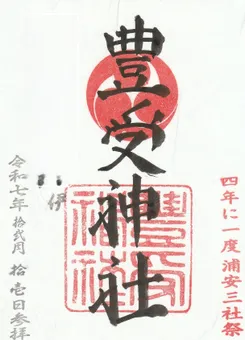 四年に一度 浦安三社祭
豊受神社
豊受神社
令和七年 拾弐月 拾壱日参拝